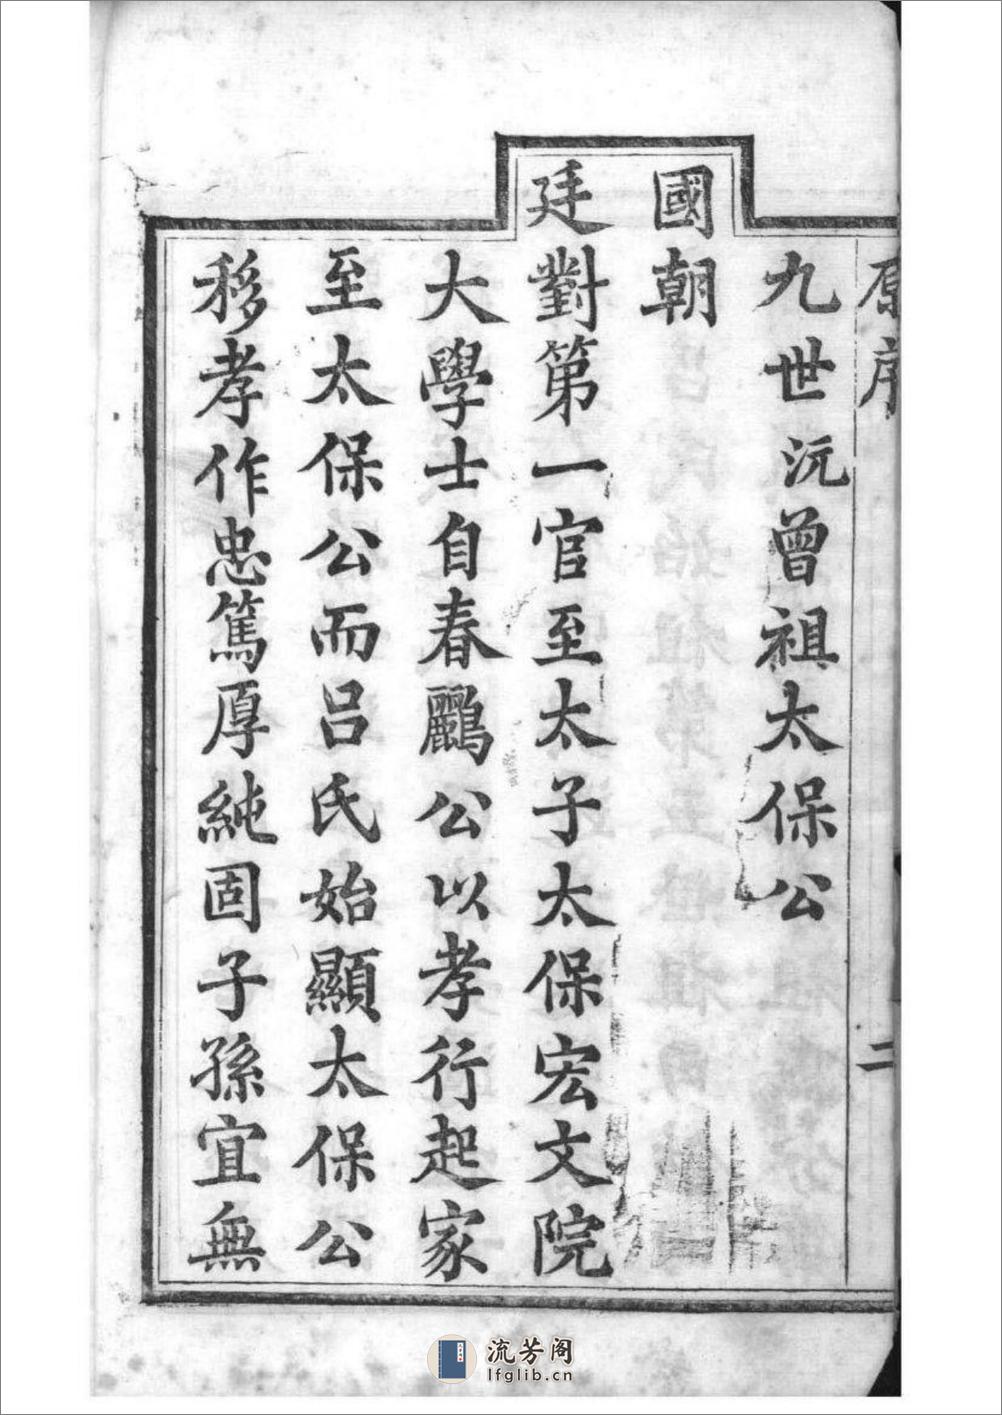 原序
二
九世沅曾祖太保公
國朝
廷對第一官至太子太保宏文院
大學士自春鸝公以孝行起家
至太保公而呂氏始顯太保公
移孝作忠篤厚純固子孫宜無
流芳阁
lfglib.cn